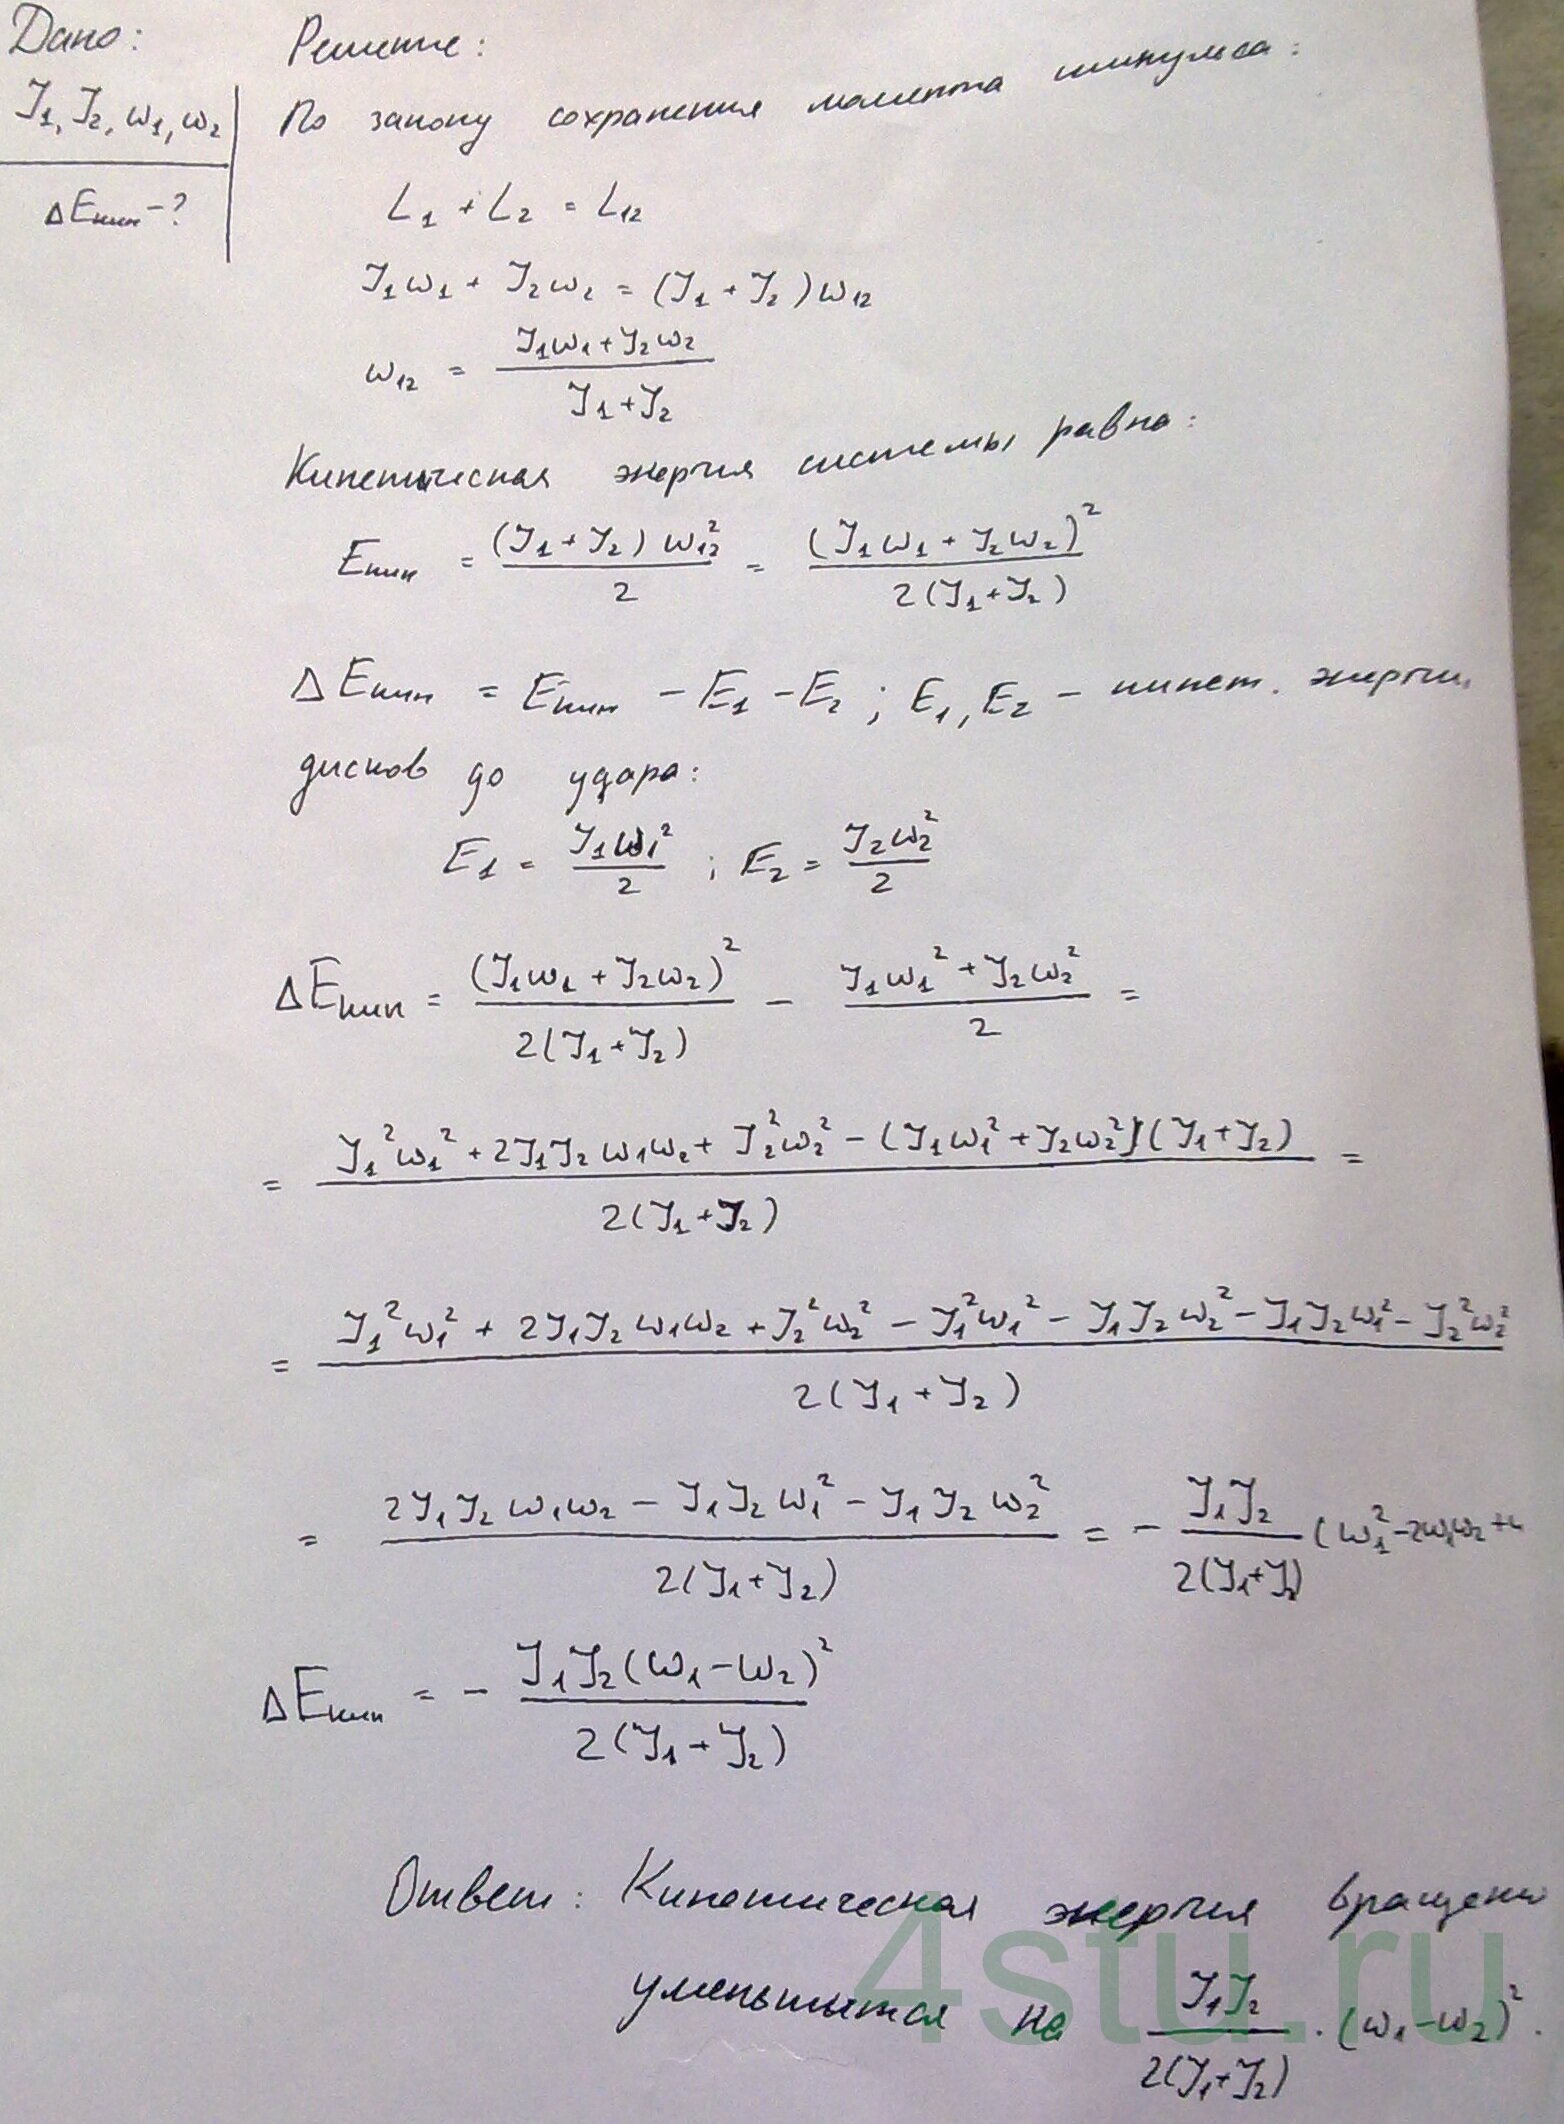 Дано:
J₁, J₂, ω₁, ω₂
ΔEкин - ?
Решение:
По закону сохранения момента импульса:
L₁ + L₂ = L₁₂
J₁ω₁ + J₂ω₂ = (J₁ + J₂)ω₁₂
ω₁₂ = (J₁ω₁ + J₂ω₂) / (J₁ + J₂)
Кинетическая энергия системы равна:
Eкин = (J₁ + J₂)ω₁₂² / 2 = (J₁ω₁ + J₂ω₂)² / 2(J₁ + J₂)
ΔEкин = Eкин - E₁ - E₂ ; E₁, E₂ - кинет. энергии
дисков до удара:
E₁ = J₁ω₁² / 2 ; E₂ = J₂ω₂² / 2
ΔEкин = (J₁ω₁ + J₂ω₂)² / 2(J₁ + J₂) - (J₁ω₁² + J₂ω₂²) / 2 =
= (J₁²ω₁² + 2J₁J₂ω₁ω₂ + J₂²ω₂² - (J₁ω₁² + J₂ω₂²)(J₁ + J₂)) / 2(J₁ + J₂) =
= (J₁²ω₁² + 2J₁J₂ω₁ω₂ + J₂²ω₂² - J₁²ω₁² - J₁J₂ω₂² - J₁J₂ω₁² - J₂²ω₂²) / 2(J₁ + J₂)
= (2J₁J₂ω₁ω₂ - J₁J₂ω₁² - J₁J₂ω₂²) / 2(J₁ + J₂) = - J₁J₂ / 2(J₁ + J₂) (ω₁² - 2ω₁ω₂ +
ΔEкин = - J₁J₂(ω₁ - ω₂)² / 2(J₁ + J₂)
Ответ: Кинетическая энергия вращени
уменьшится на J₁J₂ / 2(J₁ + J₂) · (ω₁ - ω₂)².
4stu.ru